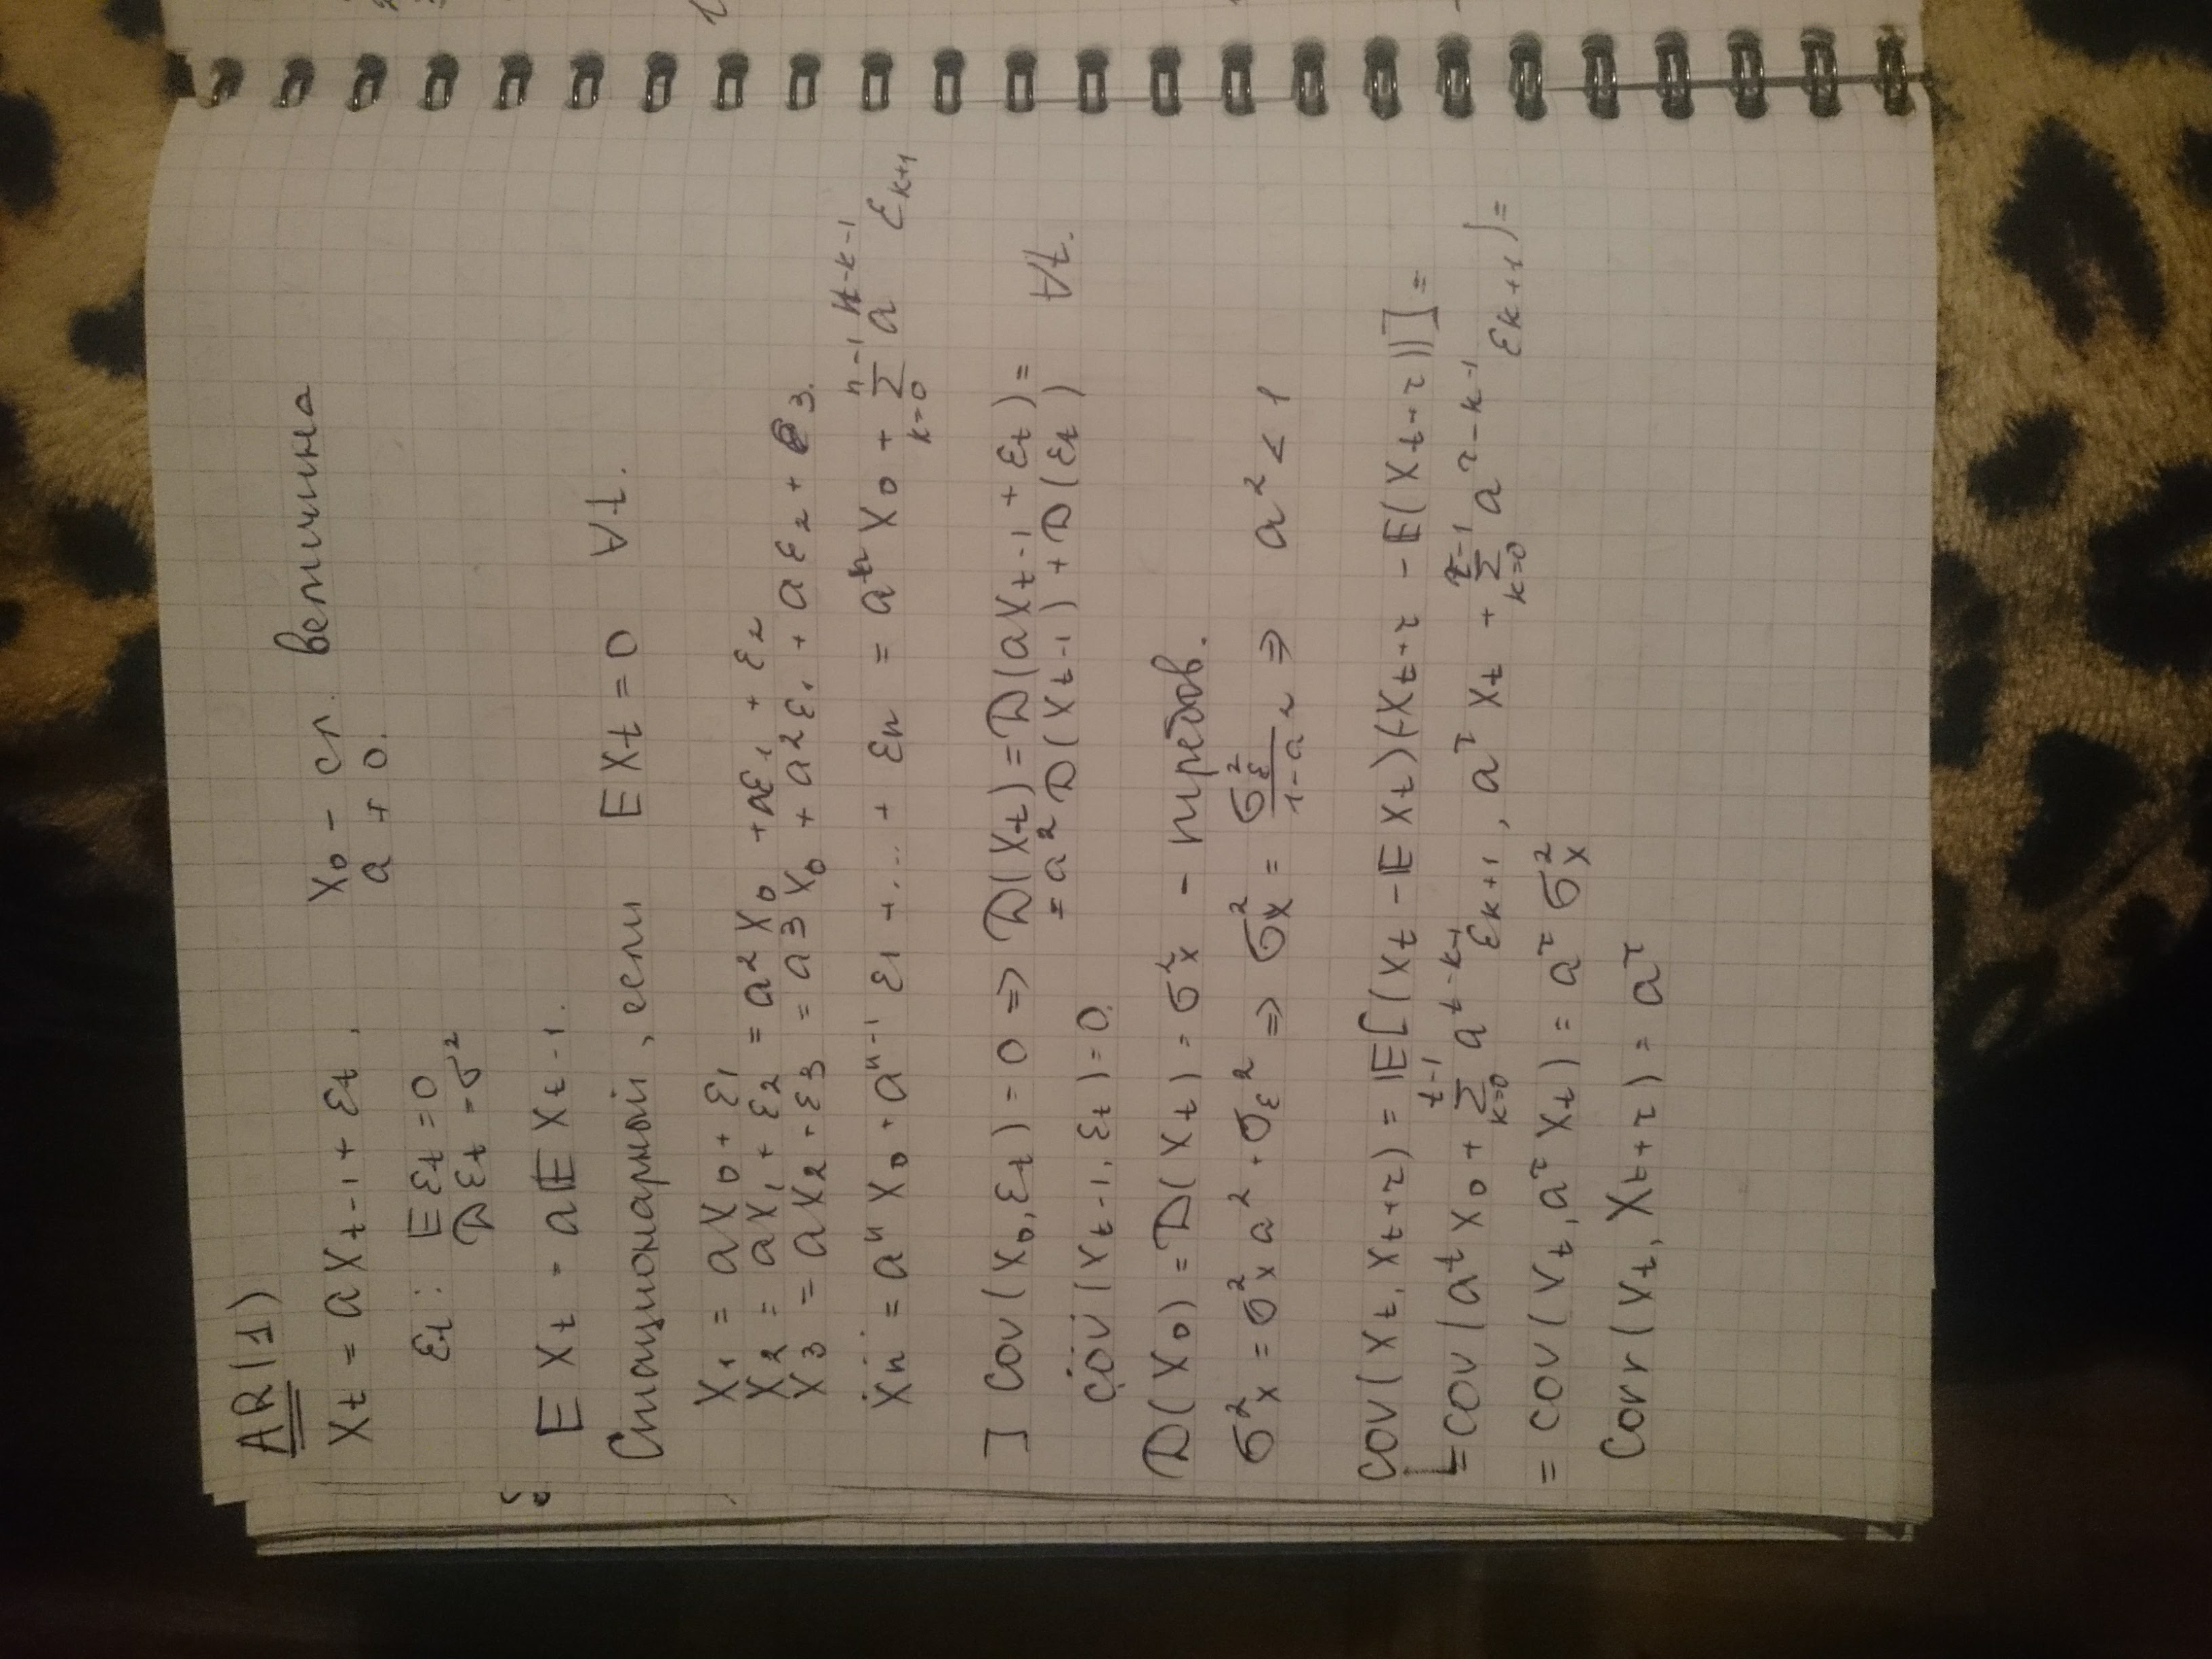 AR(1)
Xt = aXt-1 + εt, X0 - сл. величина
a ≠ 0.
εt : Eεt = 0
Dεt = σ²
EXt = aEXt-1.
Стационарный, если EXt = 0 ∀t.
X1 = aX0 + ε1
X2 = aX1 + ε2 = a²X0 + aε1 + ε2
X3 = aX2 + ε3 = a3X0 + a2ε1 + aε2 + ε3.
Xn = aⁿX0 + aⁿ⁻¹ε1 + ... + εn = aⁿX0 + Σ_{k=0}^{n-1} a^{n-k-1} εk+1
] cov(X0, εt) = 0 => D(Xt) = D(aXt-1 + εt) =
= a²D(Xt-1) + D(εt) ∀t.
cov(Xt-1, εt) = 0.
D(X0) = D(Xt) = σx² - требов.
σ²x = σ²x a² + σε² => σ²x = σε²/(1-a²) => a² < 1
cov(Xt, Xt+τ) = E[(Xt - EXt)(Xt+τ - E(Xt+τ))] =
= cov(a^t X0 + Σ_{k=0}^{t-1} a^{t-k-1} εk+1, a^τ Xt + Σ_{k=0}^{τ-1} a^{τ-k-1} εk+1) =
= cov(Xt, a^τ Xt) = a^τ σ²x
corr(Xt, Xt+τ) = a^τ